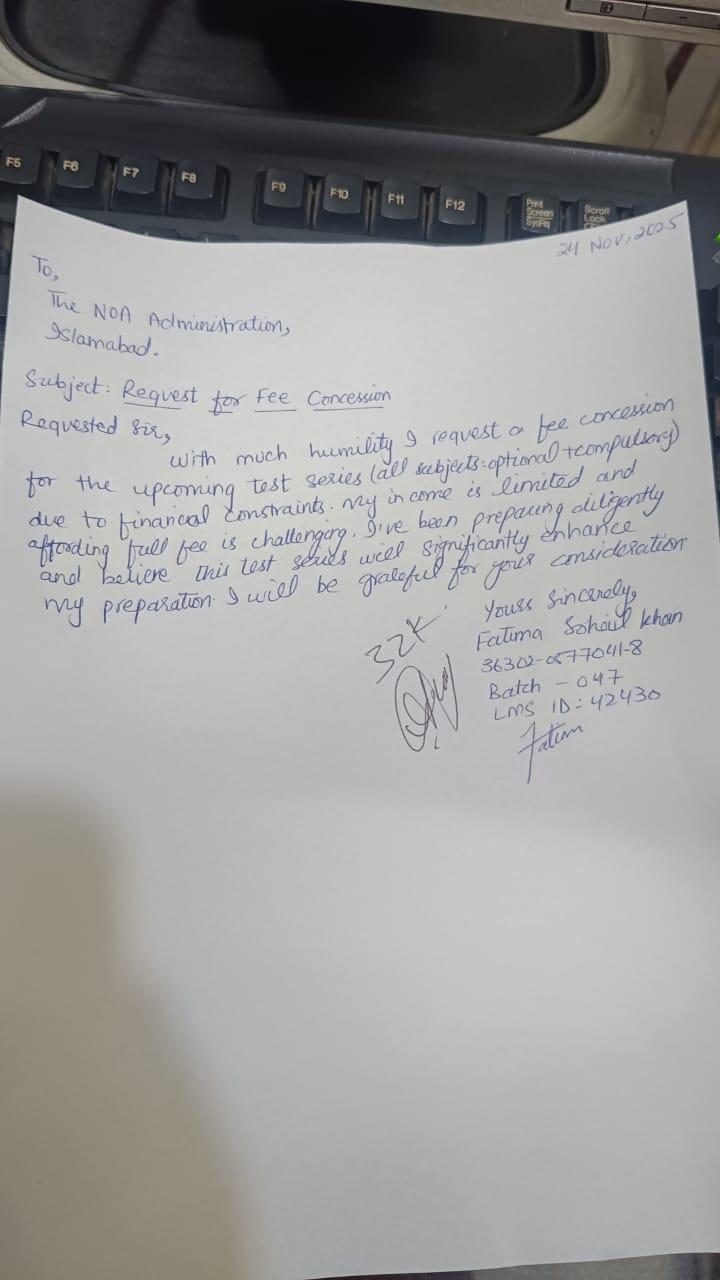 F5 F6 F7 F8 F9 F10 F11 F12
Print Screen SysRq
Scroll Lock
24 Nov, 2025
To,
The NOA Administration,
Islamabad.
Subject: Request for Fee Concession
Requested Sir,
With much humility I request a fee concession
for the upcoming test series (all subjects: optional + compulsory)
due to financial constraints. My income is limited and
affording full fee is challenging. I've been preparing diligently
and believe this test series will significantly enhance
my preparation. I will be grateful for your consideration
Yours Sincerely,
Fatima Sohail Khan
36302-0577041-8
Batch - 047
LMS ID: 42430
Fatim
32K